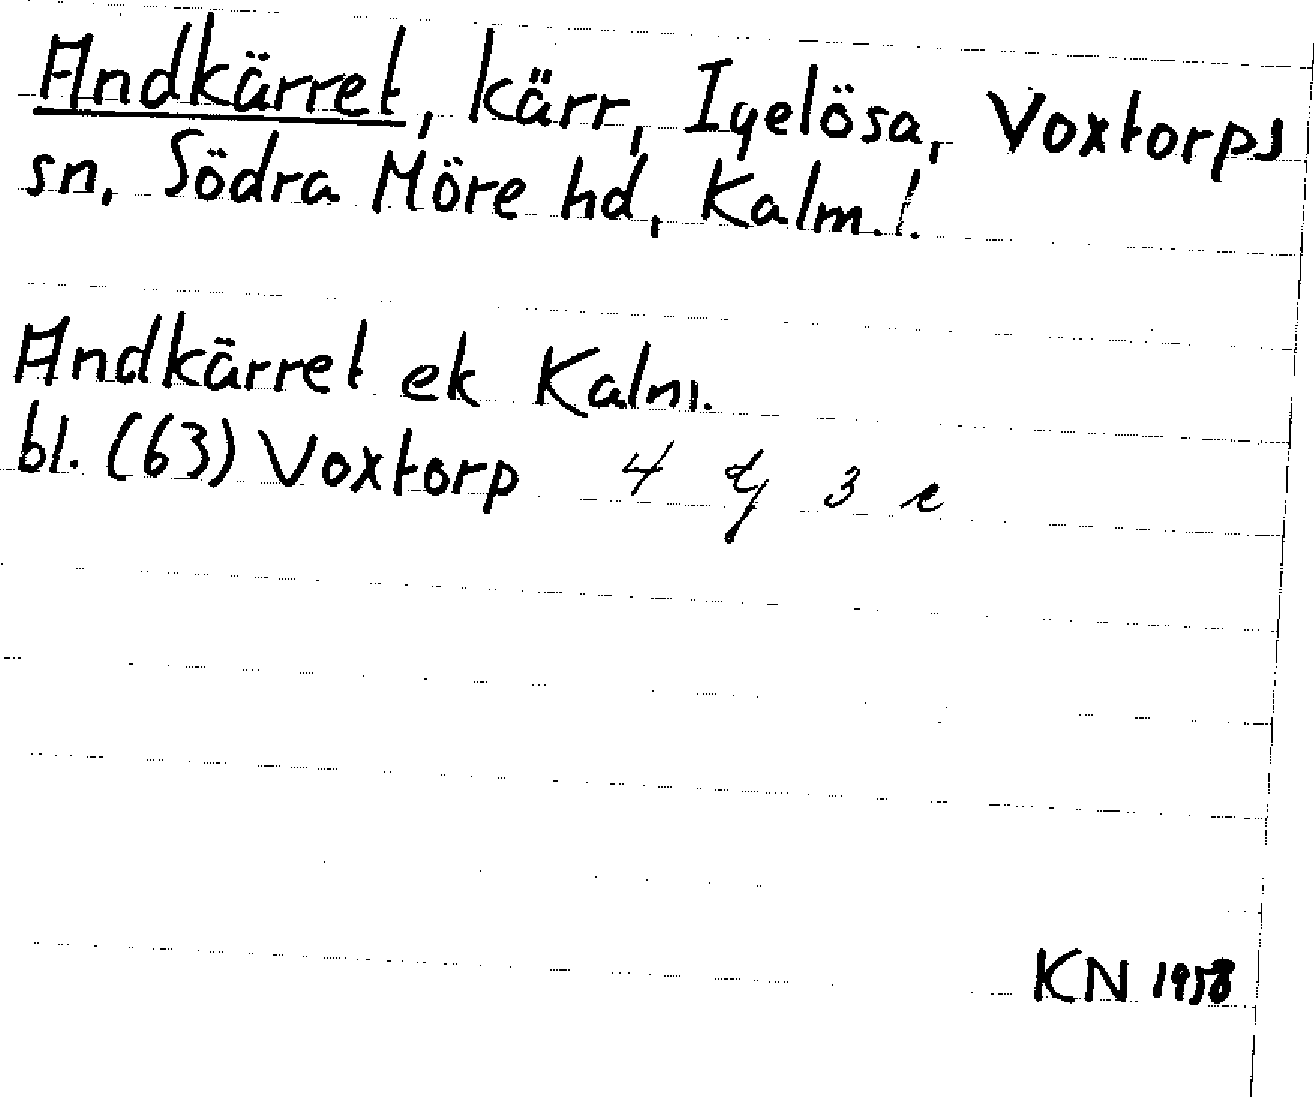 Andkärret, kärr, Igelösa, Voxtorps
sn, Södra Möre hd, Kalm.l.
Andkärret ek Kalm.
bl. (63) Voxtorp 4 g 3 e
KN 1958